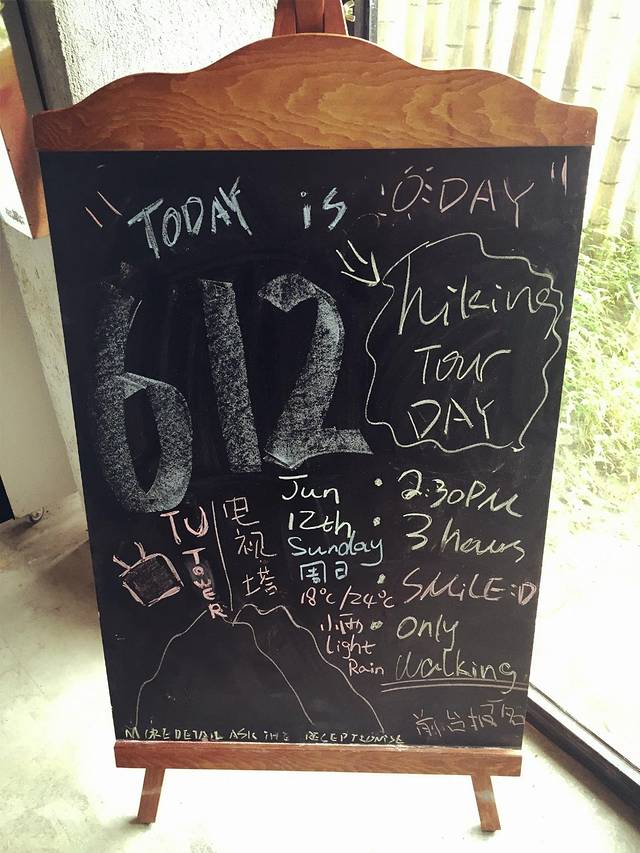 "TODAY is DAY"
612
hiking
Tour
DAY
Jun
12th
Sunday
周日
18°C/24°C
小雨
Light
Rain
• 2:30PM
• 3 hours
• SMiLE :D
• only
walking
TV
TOWER
电视塔
前台报名
MORE DETAIL ASK THE RECEPTIONISE